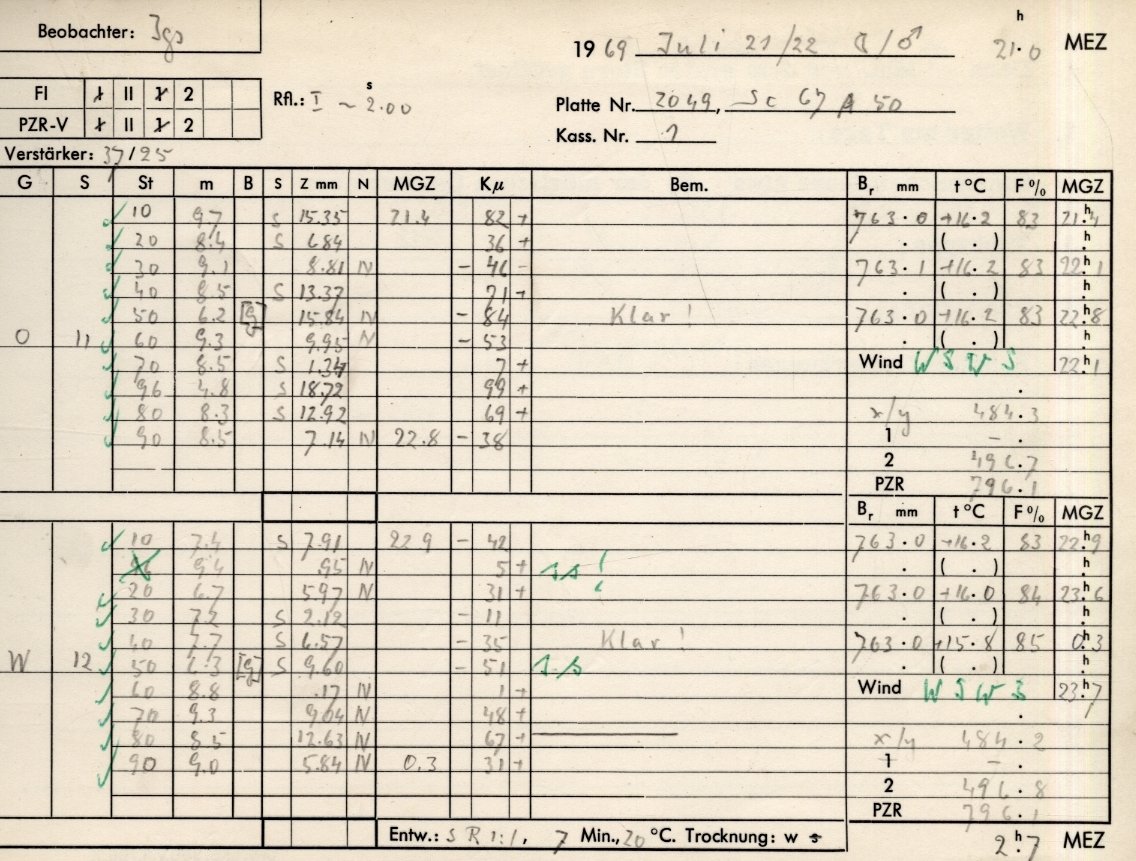 Beobachter: Jgs
1969 Juli 21/22 ☾/♂ 21.h0 MEZ
FI I II 1 2
PZR-V I II 1 2
Rfl.: I ~ 2.s00
Platte Nr. 2049, Sc 67 A 50
Kass. Nr. 1
Verstärker: 37/25
G S St m B S Z mm N MGZ Kμ Bem. Br mm t °C F % MGZ
10 9.7 S 15.35 21.4 82 + 763.0 +16.2 83 21.h4
20 8.4 S 6.84 36 + . ( . ) .h
30 9.1 8.81 N - 46 - 763.1 +16.2 83 22.h1
40 8.5 S 13.37 71 + . ( . ) .h
50 6.2 [g] 15.84 N - 84 Klar! 763.0 +16.2 83 22.h8
O 11 60 9.3 9.95 N - 53 . ( . ) .h
70 8.5 S 1.34 7 + Wind W S W S 22.h1
96 4.8 S 18.72 99 + .
80 8.3 S 12.92 69 + x/y 484.3
90 8.5 7.14 N 22.8 - 38 1 - .
2 496.7
PZR 796.1
Br mm t °C F % MGZ
10 7.4 S 7.91 22.9 - 42 763.0 +16.2 83 22.h9
96 9.4 .95 N 5 + s s ! . ( . ) .h
20 6.7 5.97 N 31 + 763.0 +16.0 84 23.h6
30 7.2 S 2.12 - 11 . ( . ) .h
40 7.7 S 6.57 - 35 Klar! 763.0 +15.8 85 0.h3
W 12 50 6.3 [g] S 9.60 - 51 s.s . ( . ) .h
60 8.8 .17 N 1 + Wind W S W S 23.h7
70 9.3 9.04 N 48 + .
80 8.5 12.63 N 67 + x/y 484.2
90 9.0 5.84 N 0.3 31 + 1 - .
2 496.8
PZR 796.1
Entw.: S R 1:1, 7 Min., 20 °C. Trocknung: w s 2.h7 MEZ